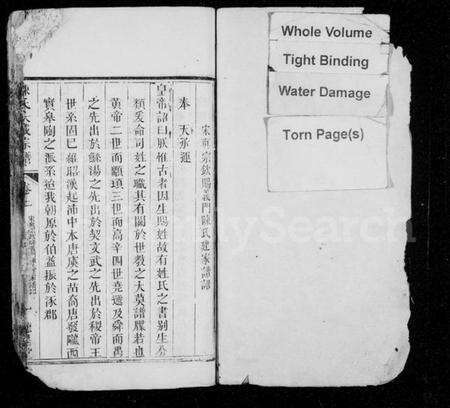 Whole Volume
Tight Binding
Water Damage
Torn Page(s)
宗欽賜義門陳氏建家譜
奉 天承運
皇帝詔曰朕惟古者因生賜姓故有姓氏之書别生分
類爰命司姓之職其有關於世教之大莫譜牒若也
黄帝二世而顓頊三世而高辛四世堯遞及舜而禹
之先出於鯀湯之先出於契文武之先出於稷帝王
世系固已雖昭漢起沛中本唐虞之苗裔唐發隴西
實皋陶之派系逮我朝原於伯益振於涿郡
氏大成宗譜